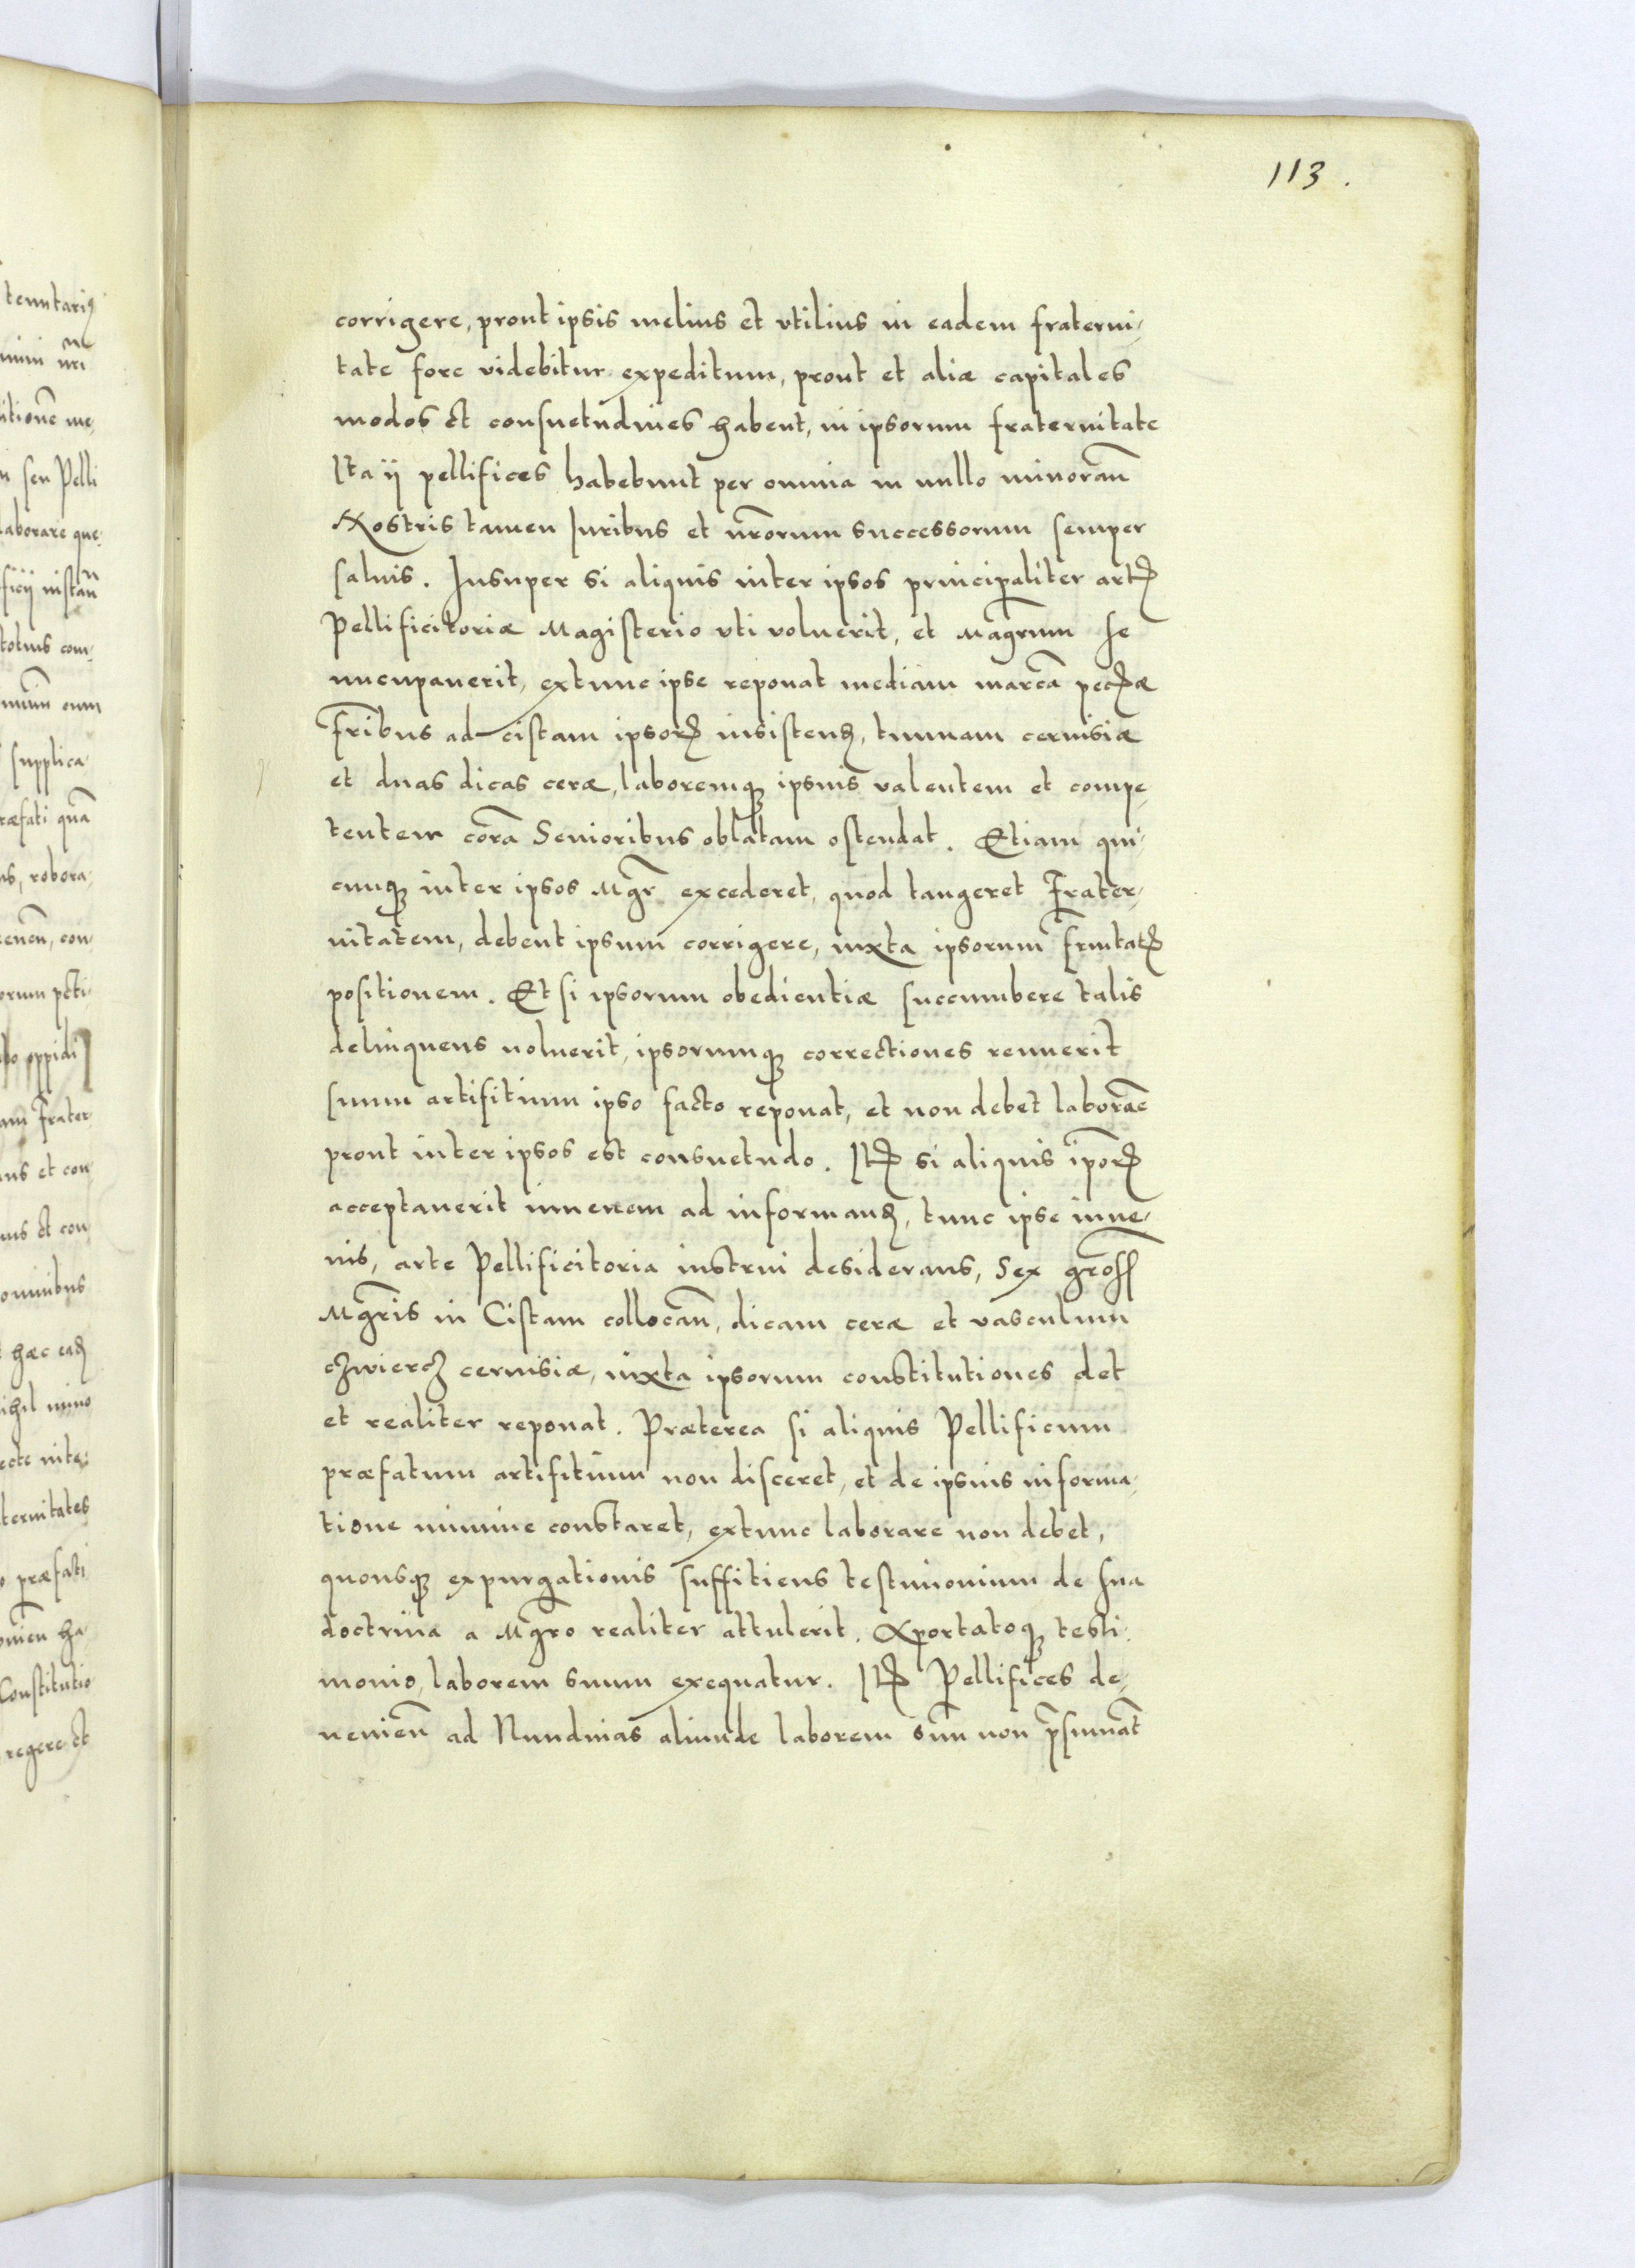 113.
corrigere, prout ipsis melius et vtilius in eadem fraterni-
tate fore videbitur expeditum, prout et aliæ capitales
modos et consuetudines habent, in ipsorum fraternitate
Ita ij pellifices habebunt per omnia in nullo minorañ
Nostris tamen Iuribus et nr̃orum successorum semper
saluis. Insuper si aliquis inter ipsos principaliter artꝭ
Pellificitoriæ Magisterio vti voluerit, et Magr̃um se
nucupauerit, extunc ipse reponat mediam marcã pecꝭæ
fr̃ibus ad cistam ipsorꝭ insistenꝭ, tunnam ceruisiæ
et duas dicas ceræ, laboremqꝫ ipsius valentem et compe-
tentem corã Senioribus oblatam ostendat. Etiam qui-
cunqꝫ inter ipsos Mgr̃ excederet, quod tangeret Frater-
nitatem, debent ipsum corrigere, iuxta ipsorum fr̃nitatꝭ
positionem. Et si ipsorum obedientiæ succumbere talis
delinquens noluerit, ipsorumqꝫ correctiones renuerit
suum artifitium ipso facto reponat, et non debet laborãe
prout inter ipsos est consuetudo. Itꝭ si aliquis ip̃orꝭ
acceptauerit iuuenem ad informanꝭ, tunc ipse iuue-
nis, arte Pellificitoria instrui desiderans, Sex gross̃
Mgr̃is in Cistam collocañ, dicam ceræ et vasculum
czwiercz ceruisiæ, iuxta ipsorum constitutiones det
et realiter reponat. Præterea si aliquis Pellificum
præfatum artifitium non disceret, et de ipsius informa-
tione minime constaret, extunc laborare non debet,
quousqꝫ expurgationis suffitiens testimonium de sua
doctrina a Mgr̃o realiter attulerit. Apportatoqꝫ testi-
monio, laborem suum exequatur. Itꝭ Pellifices de-
venieñ ad Nundinas aliunde laborem suũ non p̃sumãt